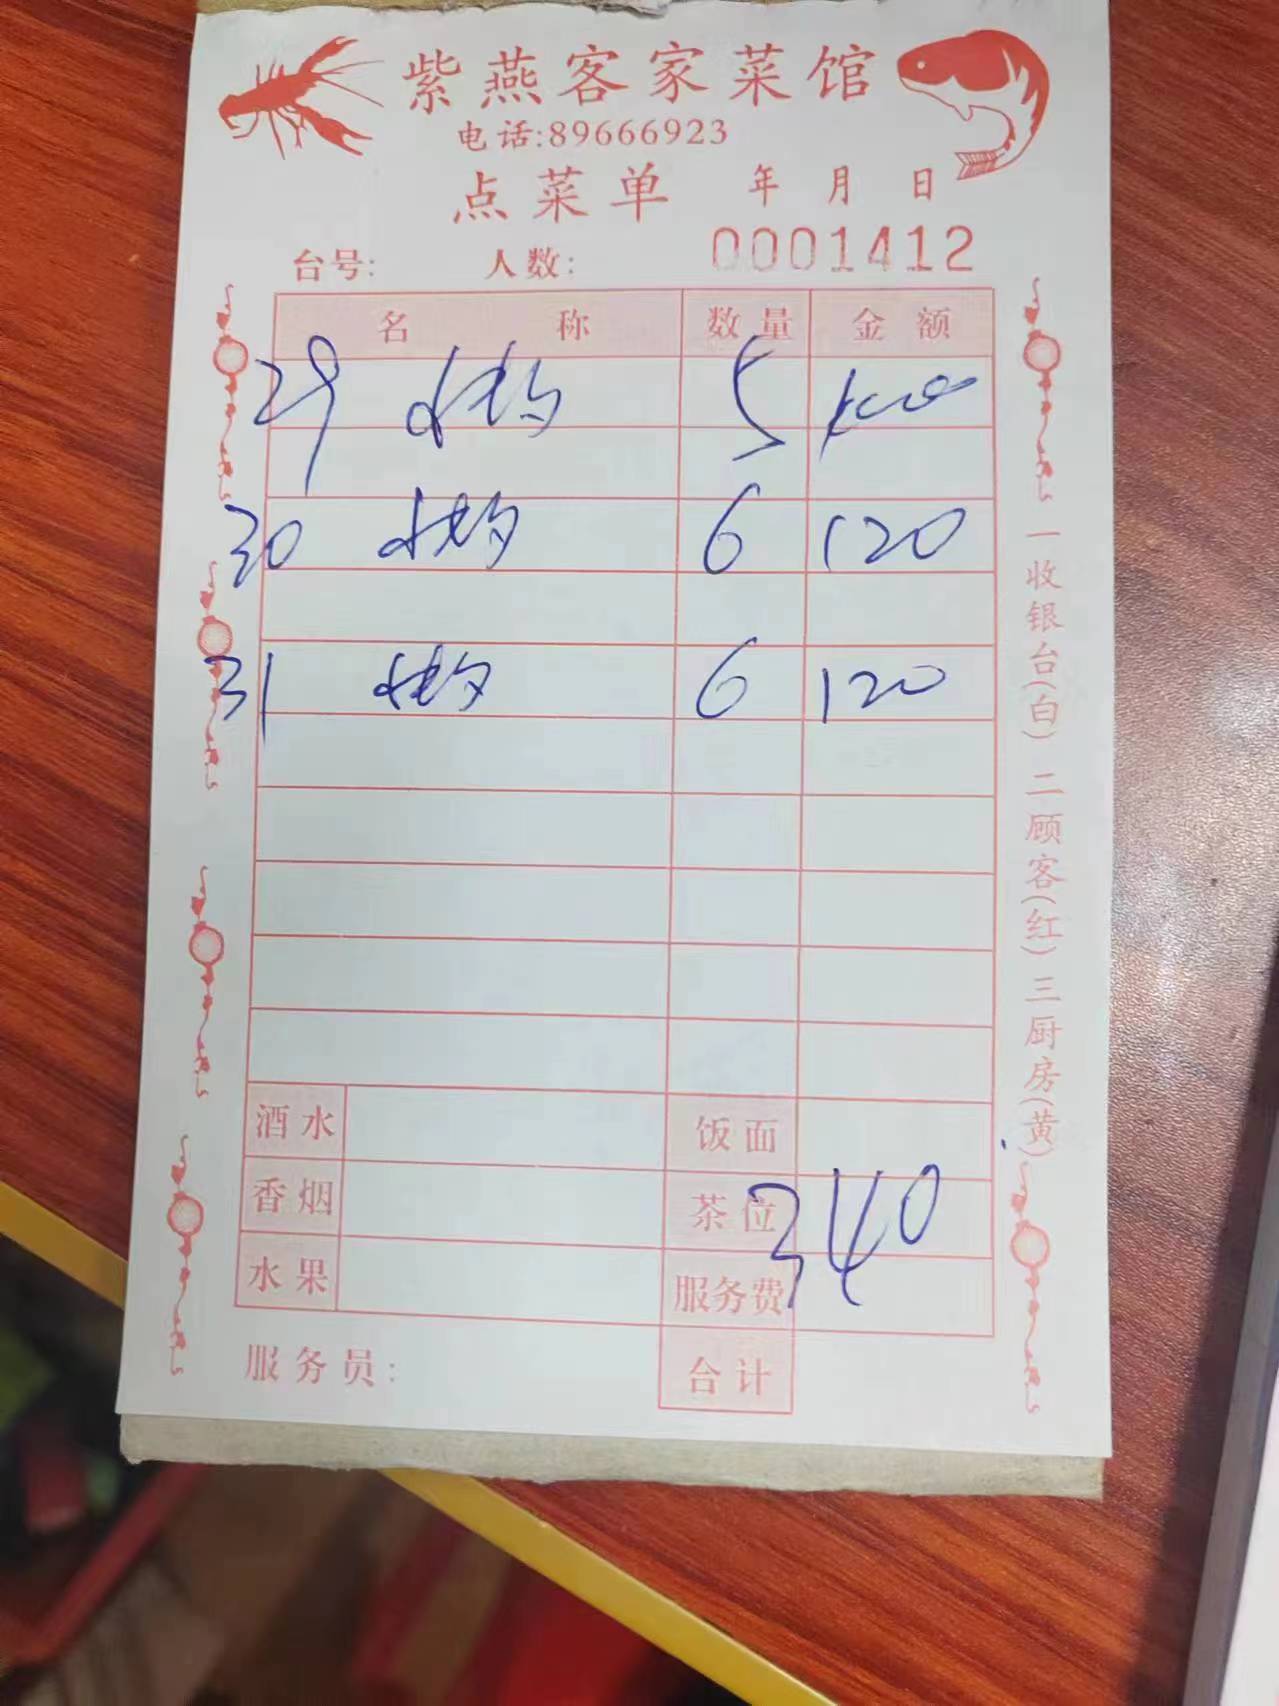 紫燕客家菜馆
电话:89666923
点菜单 年 月 日
台号: 人数: 0001412
名称 数量 金额
29 5 100
30 6 120
31 6 120
酒水 饭面
香烟 茶位
340
水果 服务费
服务员: 合计
一收银台(白) 二顾客(红) 三厨房(黄)